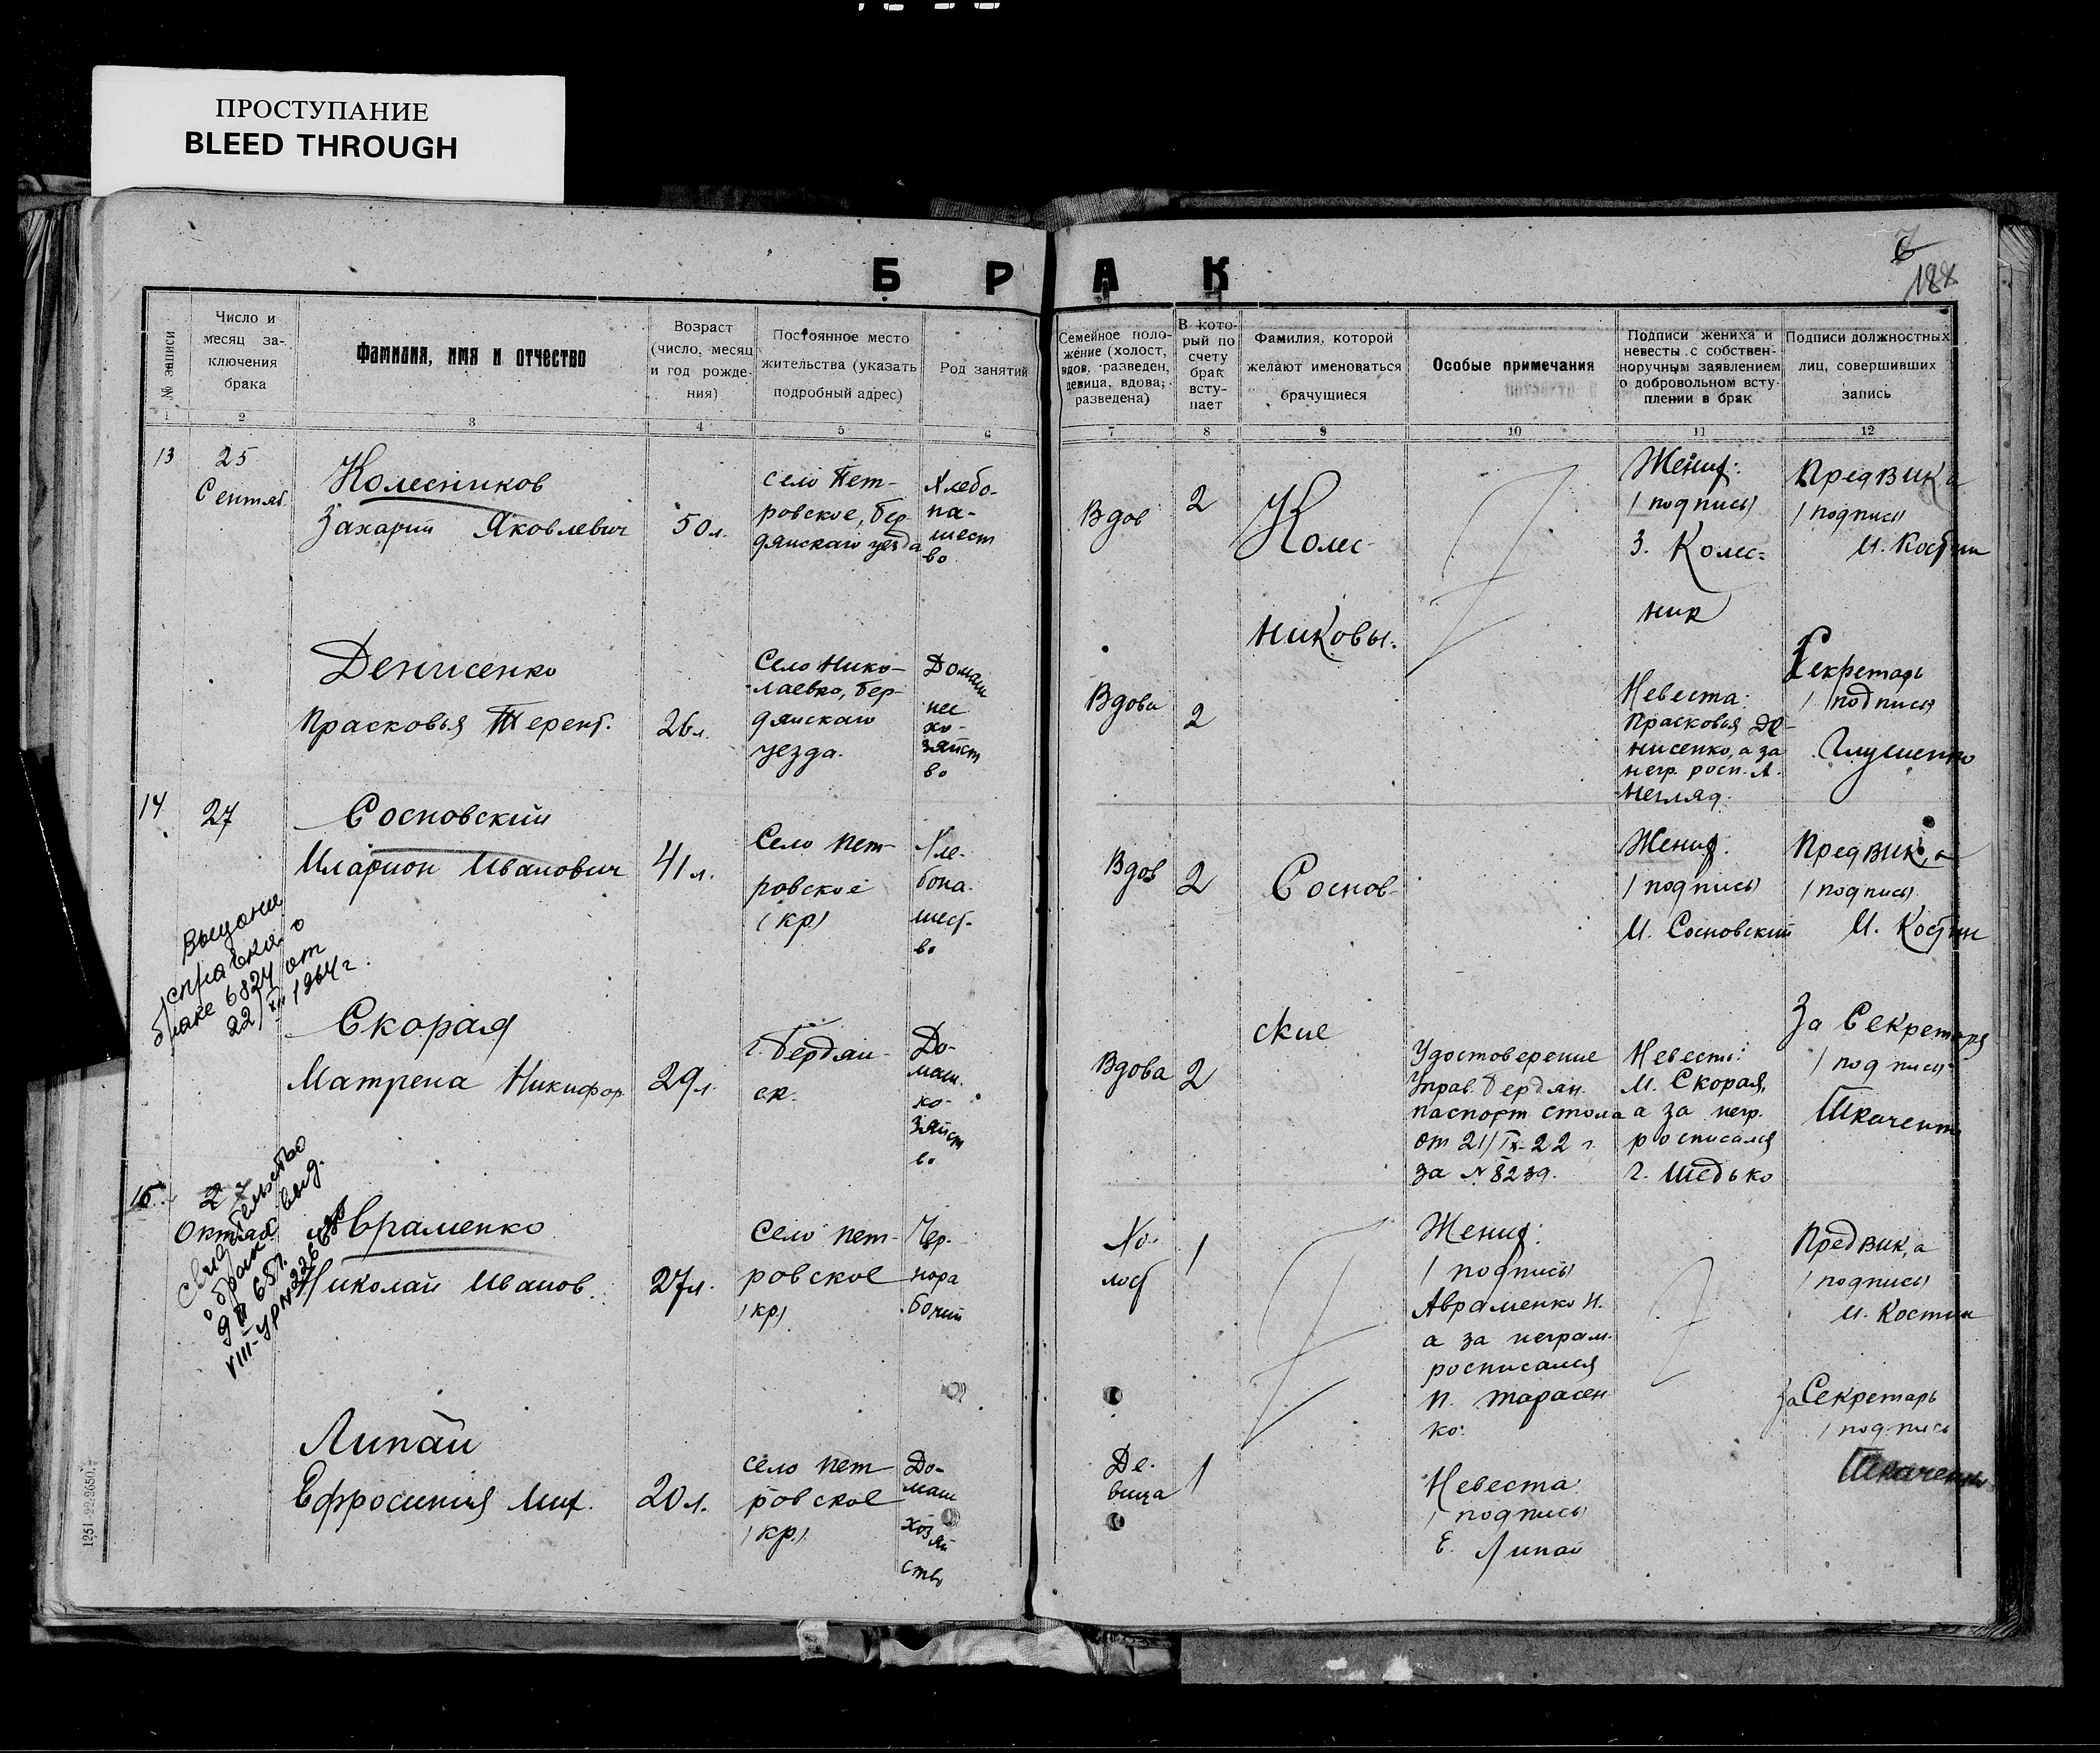 ПРОСТУПАНИЕ
BLEED THROUGH
БРАК
6
188
№ записи
Число и
месяц за-
ключения
брака
Фамилия, имя и отчество
Возраст
(число, месяц
и год рожде-
ния)
Постоянное место
жительства (указать
подробный адрес)
Род занятий
Семейное поло-
жение (холост,
вдов, разведен,
девица, вдова,
разведена)
В кото-
рый по
счету
брак
всту-
пает
Фамилия, которой
желают именоваться
брачущиеся
Особые примечания
Подписи жениха и
невесты с собствен-
норучным заявлением
о добровольном всту-
плении в брак
Подписи должностных
лиц, совершивших
запись
1 2 3 4 5 6 7 8 9 10 11 12
13
25
Сентяб.
Колесников
Захарий Яковлевич
50 л.
село Пет-
ровское, бер
дянского уезда
Хлебо-
па-
шест
во
Вдов
2
Колес-
никовы.
Жених:
(подпись)
З. Колес=
ник
Предвика
(подпись)
И. Костин
Денисенко
Прасковья Терент.
26 л.
Село Нико-
лаевка, бер-
дянскаго
уезда.
Домаш
нее
хо-
зяйст
во
Вдова
2
Невеста:
Прасковья Де-
нисенко, а за
негр. росп. А.
Негляд.
Секретарь
(подпись)
14
27
Сосновский
Иларион Иванович
41 л.
Село Пет-
ровское
(кр)
Хле-
бопа-
шест-
во
Вдов
2
Соснов-
ские
Жених:
(подпись)
И. Сосновский
Предвик, а
(подпись)
И. Костин
Выдана
справка о
браке 6824 от
22/XII 1964 г.
Скорая
Матрена Никифор.
29 л.
г. Бердян-
ск.
До-
маш.
хо-
зяйст
во
Вдова
2
Удостоверение
Управ. Бердян.
паспорт. стола
от 21/IX-22 г.
за № 8239.
Невеста:
М. Скорая,
а за негр.
росписался
Г. Шедько
За Секретаря
(подпись)
Ткаченко
15.
27
Октяб
Авраменко
Николай Иванов.
27 л.
Село Пет-
ровское
(кр)
Чер-
нора
бочий
Хо-
лост
1
Жених:
(подпись)
Авраменко Н.
а за неграм.
росписался
П. Тарасен
ко.
Предвик, а
(подпись)
И. Костин
Свидетельство
о браке выд.
Липай
Ефросиния Мих.
20 л.
село Пет
ровское
(кр).
До-
маш
хозяй
ство
Де-
вица
1
Невеста:
(подпись)
Е. Липай
За Секретарь
(подпись
Ткаченко
1251-22-2650.